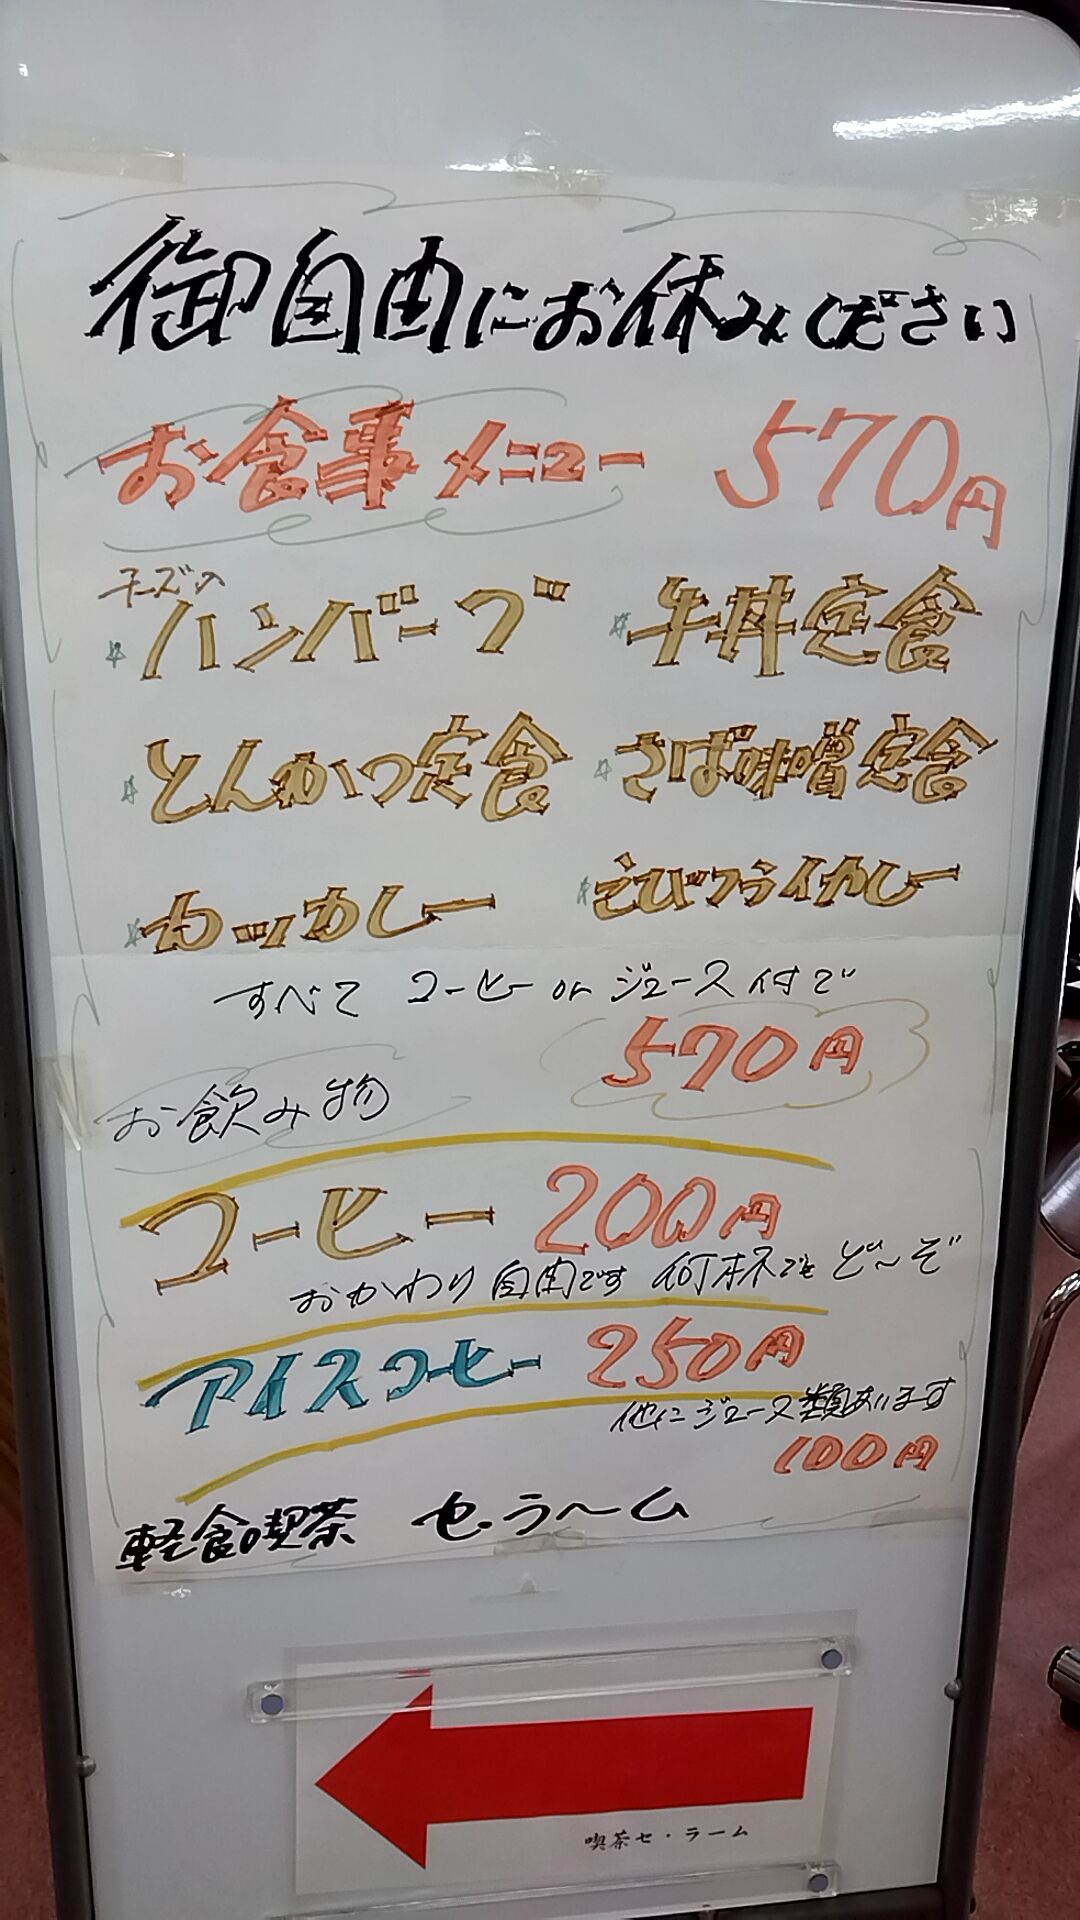 御自由にお休みください
お食事メニュー 570円
チーズの
*ハンバーグ *牛丼定食
*とんかつ定食 *さば味噌定食
*カツカレー *えびフライカレー
すべて コーヒー or ジュース付で
570円
お飲み物
コーヒー 200円
おかわり自由です 何杯でも ど〜ぞ
アイスコーヒー 250円
他にジュース類あります
100円
軽食喫茶 セ・ラーム
喫茶セ・ラーム